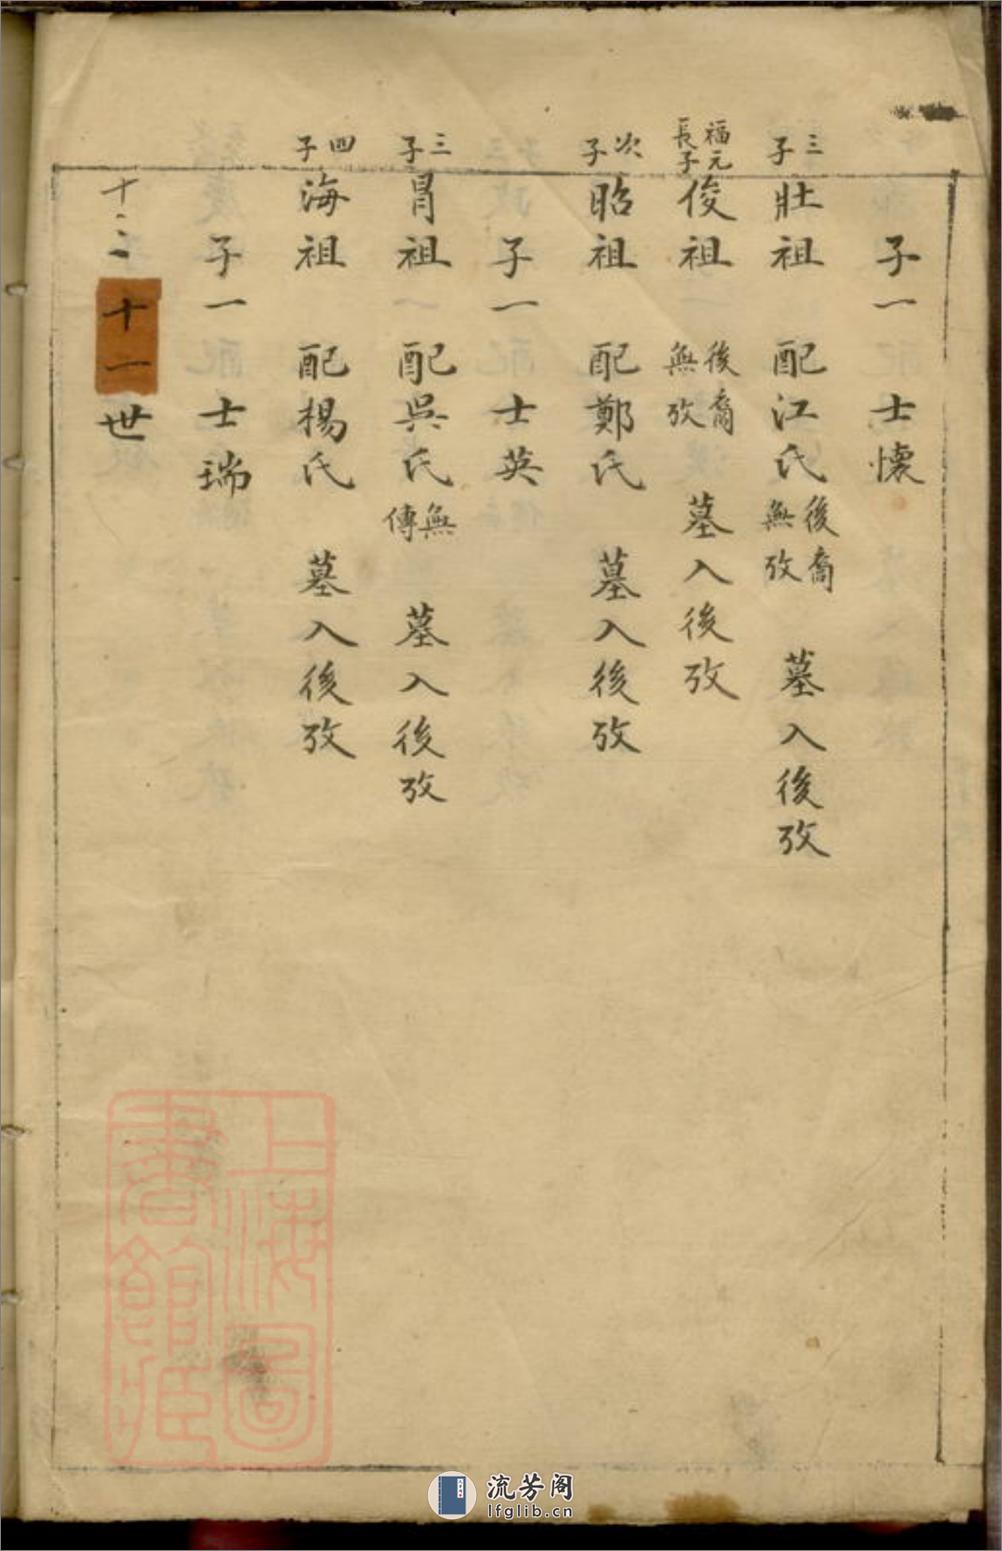 子一 士懷
三子 壯祖 配江氏 後裔無攷 墓入後攷
福元長子 俊祖 後裔無攷 墓入後攷
次子 昭祖 配鄭氏 墓入後攷
子一 士英
三子 胃祖 配吳氏 無傳 墓入後攷
四子 海祖 配楊氏 墓入後攷
子一 士瑞
十一世
上海圖書館藏
流芳阁
lfglib.cn